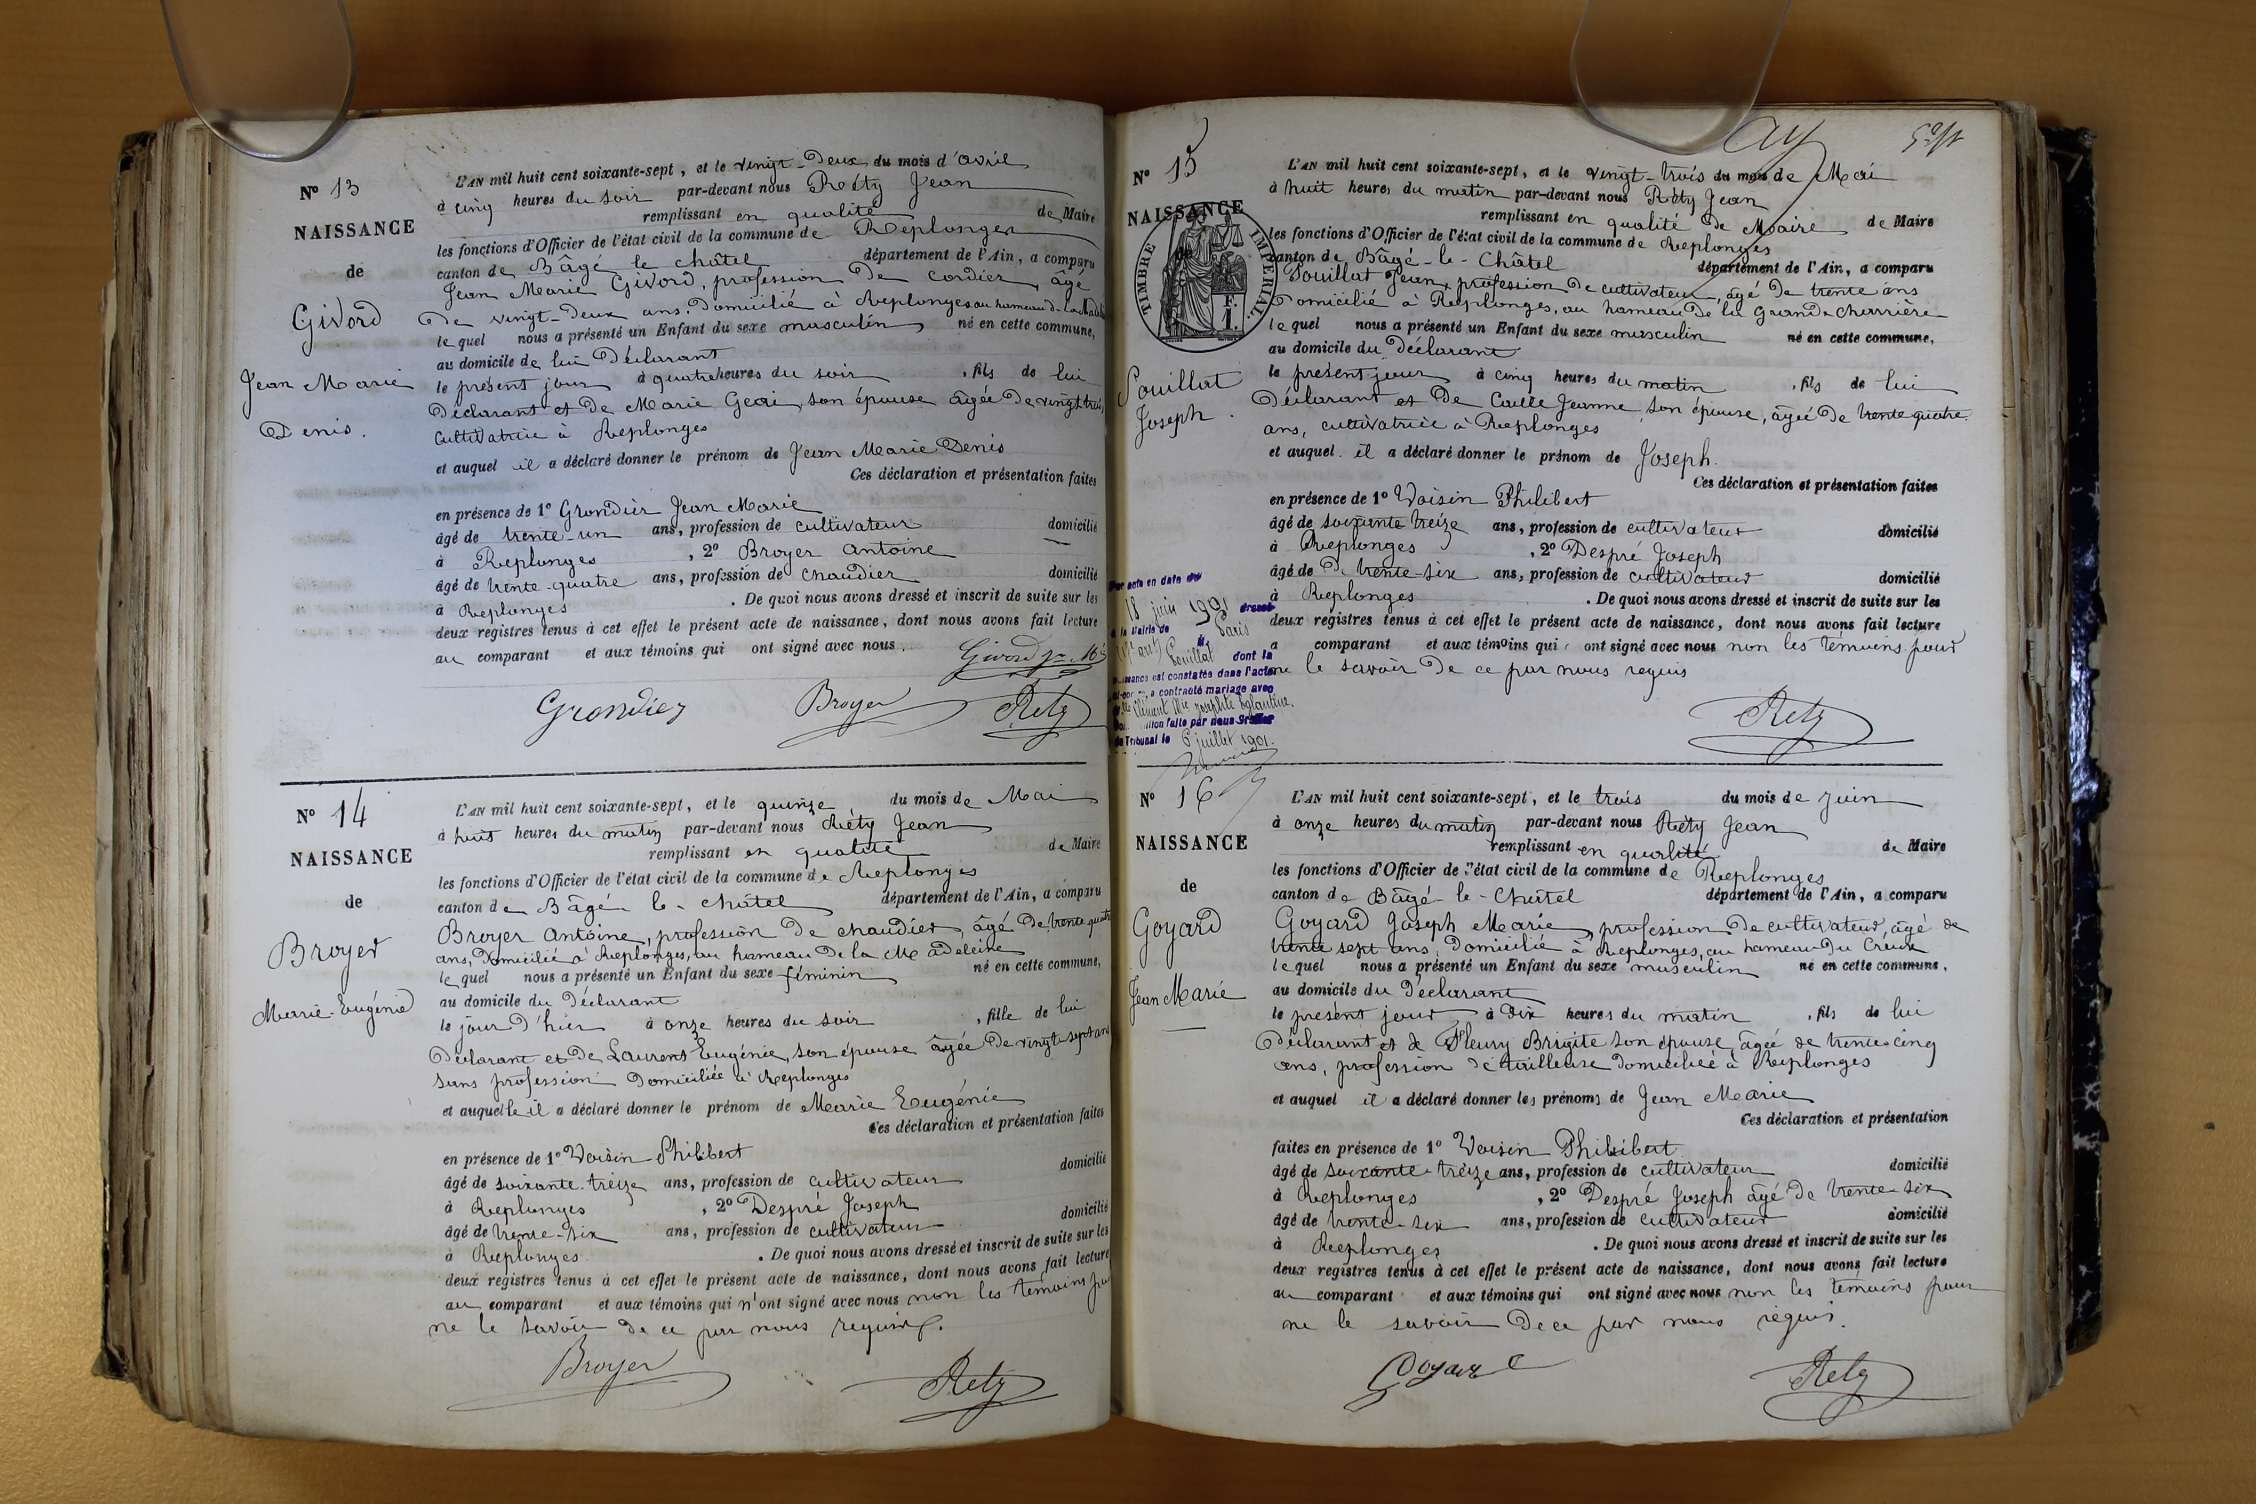 N° 13
NAISSANCE
de
Givord
Jean Marie
Denis.
L'AN mil huit cent soixante-sept, et le vingt-Deux du mois d'avril
à cinq heures du soir par-devant nous Réty Jean
remplissant en qualité de Maire
les fonctions d'Officier de l'état civil de la commune de Replonges
canton de Bâgé le châtel département de l'Ain, a comparu
Jean Marie Givord, profession De cordier, âgé
De vingt-Deux ans. Domicilié à Replonges au hameau de
le quel nous a présenté un Enfant du sexe masculin né en cette commune,
au domicile de lui Déclarant
le présent jour à quatre heures du soir, fils de lui
Déclarant et De Marie Geai, son épouse âgée De vingt trois,
Cultivatrice à Replonges
et auquel il a déclaré donner le prénom de Jean Marie Denis
Ces déclaration et présentation faites
en présence de 1° Grondier Jean Marie
âgé de trente-un ans, profession de cultivateur domicilié
à Replonges, 2° Broyer Antoine
âgé de trente-quatre ans, profession de chaudier domicilié
à Replonges. De quoi nous avons dressé et inscrit de suite sur les
deux registres tenus à cet effet le présent acte de naissance, dont nous avons fait lecture
au comparant et aux témoins qui ont signé avec nous.
Givord
Grondier Broyer Réty
N° 14
NAISSANCE
de
Broyer
Marie-Eugénie
L'AN mil huit cent soixante-sept, et le quinze, du mois de Mai
à huit heures du matin par-devant nous Réty Jean
remplissant en qualité de Maire
les fonctions d'Officier de l'état civil de la commune de Replonges
canton de Bâgé le-châtel département de l'Ain, a comparu
Broyer Antoine, profession De chaudier, âgé De trente quatre
ans, Domicilié à Replonges, au hameau De la Madeleine
le quel nous a présenté un Enfant du sexe féminin né en cette commune,
au domicile du Déclarant
le jour D'hier à onze heures du soir, fille de lui
Déclarant et De Laurent Eugénie, son épouse âgée De vingt-sept ans
sans profession Domiciliée à Replonges
et auquelle il a déclaré donner le prénom de Marie Eugénie
Ces déclaration et présentation faites
en présence de 1° Voisin Philibert
âgé de soixante-treize ans, profession de cultivateur domicilié
à Replonges, 2° Despré Joseph
âgé de trente-six ans, profession de cultivateur domicilié
à Replonges. De quoi nous avons dressé et inscrit de suite sur les
deux registres tenus à cet effet le présent acte de naissance, dont nous avons fait lecture
au comparant et aux témoins qui n'ont signé avec nous non les témoins pour
ne le savoir De ce par nous requis.
Broyer Réty
N° 15
NAISSANCE
de
TIMBRE IMPERIAL.
F.
1.
Pouillat
Joseph.
L'AN mil huit cent soixante-sept, et le vingt-trois du mois de Mai
à huit heures du matin par-devant nous Réty Jean
remplissant en qualité de Maire de Maire
les fonctions d'Officier de l'état civil de la commune de Replonges
canton de Bâgé-le-Châtel département de l'Ain, a comparu
Pouillat Jean, profession De cultivateur, âgé De trente ans
Domicilié à Replonges, au hameau De la grande charrière
le quel nous a présenté un Enfant du sexe masculin né en cette commune,
au domicile du Déclarant
le présent jour à cinq heures du matin, fils de lui
Déclarant et De Caille Jeanne, son épouse, âgée De trente quatre
ans, cultivatrice à Replonges
et auquel il a déclaré donner le prénom de Joseph.
Ces déclaration et présentation faites
en présence de 1° Voisin Philibert
âgé de soixante treize ans, profession de cultivateur domicilié
à Replonges, 2° Despré Joseph
âgé de De trente-six ans, profession de cultivateur domicilié
à Replonges. De quoi nous avons dressé et inscrit de suite sur les
deux registres tenus à cet effet le présent acte de naissance, dont nous avons fait lecture
a comparant et aux témoins qui ont signé avec nous non les témoins pour
ne le savoir De ce par nous requis
Réty
Par acte en date du
18 juin 1901 dressé
à la Mairie de Paris
Pouillat dont la
naissance est constatée dans l'acte
ci-contre, a contracté mariage avec
Joséphite Eglantine.
faite par nous Greffier
du Tribunal le 6 juillet 1901.
N° 16
NAISSANCE
de
Goyard
Jean Marie
L'AN mil huit cent soixante-sept, et le trois du mois de Juin
à onze heures du matin par-devant nous Réty Jean
remplissant en qualité de Maire
les fonctions d'Officier de l'état civil de la commune de Replonges
canton de Bâgé-le-Châtel département de l'Ain, a comparu
Goyard Joseph Marie, profession De cultivateur, âgé de
trente sept ans, Domicilié à Replonges, au hameau Du Creux
le quel nous a présenté un Enfant du sexe masculin né en cette commune,
au domicile du Déclarant
le présent jour à dix heures du matin, fils de lui
Déclarant et de Fleury Brigite son épouse, âgée de trente-cinq
ans, profession de tailleuse domiciliée à Replonges
et auquel il a déclaré donner les prénoms de Jean Marie
Ces déclaration et présentation
faites en présence de 1° Voisin Philibert
âgé de soixante-treize ans, profession de cultivateur domicilié
à Replonges, 2° Despré Joseph âgé De trente-six
âgé de trente-six ans, profession de cultivateur domicilié
à Replonges. De quoi nous avons dressé et inscrit de suite sur les
deux registres tenus à cet effet le présent acte de naissance, dont nous avons fait lecture
au comparant et aux témoins qui ont signé avec nous non les témoins pour
ne le savoir De ce par nous requis.
Goyard Réty